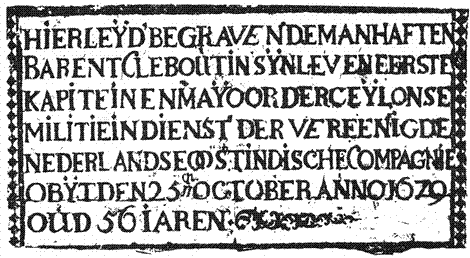 HIERLEŸD BEGRAVEN DE MANHAFTEN
BARENT CLEBOUT IN SŸN LEVEN EERSTE
KAPITEIN EN MAYOOR DER CEŸLONSE
MILITIE IN DIENST DER VEREENIGDE
NEDERLANDSE OOSTINDISCHE COMPAGNIE
OBŸT DEN 25 OCTOBER ANNO 1679
OUD 56 IAREN: